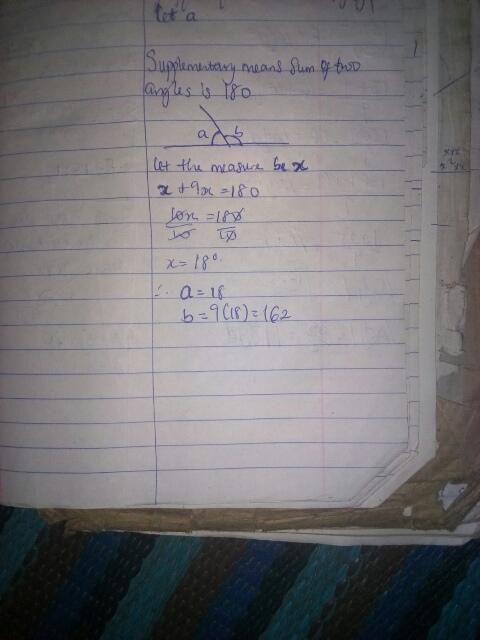 let a
Supplementary means sum of two
angles is 180
a b
let the measure be x
x + 9x = 180
10x = 180
10 10
x = 18°
∴ a = 18
b = 9(18) = 162